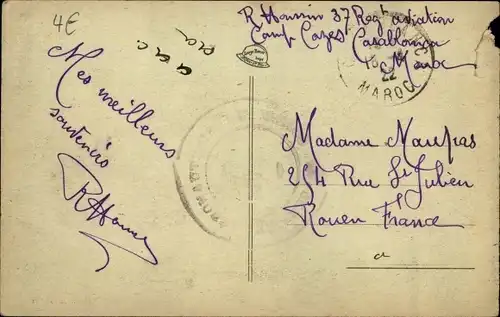 4€
R Hamin 37 Regt aviation
Camp Cazes Casablanca
Maroc
22
MAROC
a a c
Mes meilleurs
souvenirs
Madame Maupas
254 Rue St Julien
Rouen France